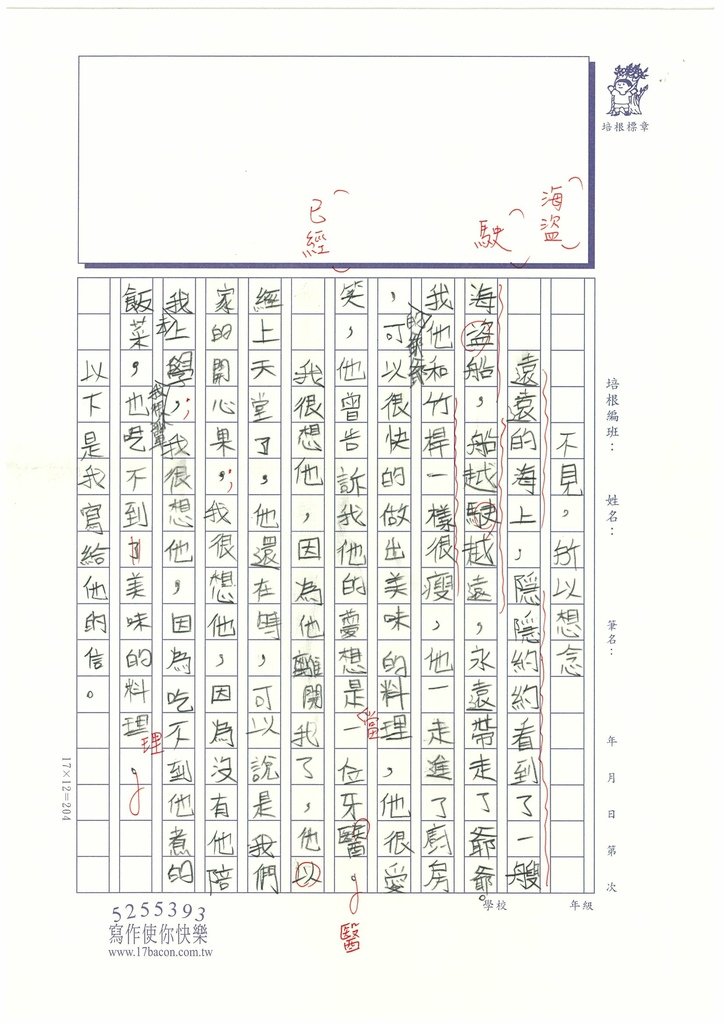 培根標章
海盜
駛
已經
培根編班：
姓名：
筆名：
年 月 日 第 次
不見，所以想念
遠遠的海上，隱隱約約看到了一艘
海盜船，船越駛越遠，永遠帶走了爺爺。
我的爺爺他和竹桿一樣很瘦，他一走進了廚房
，可以很快的做出美味的料理，他很愛
笑，他曾告訴我他的夢想是當一位牙醫。
醫
我很想他，因為他離開我了，他以
經上天堂了，他還在時，可以說是我們
家的開心果；我很想他，因為沒有他陪
我去上學；我很想他，因為吃不到他煮的
飯菜，也吃不到了美味的料理。
理
以下是我寫給他的信。
17×12=204
學校 年級
5255393
寫作使你快樂
www.17bacon.com.tw